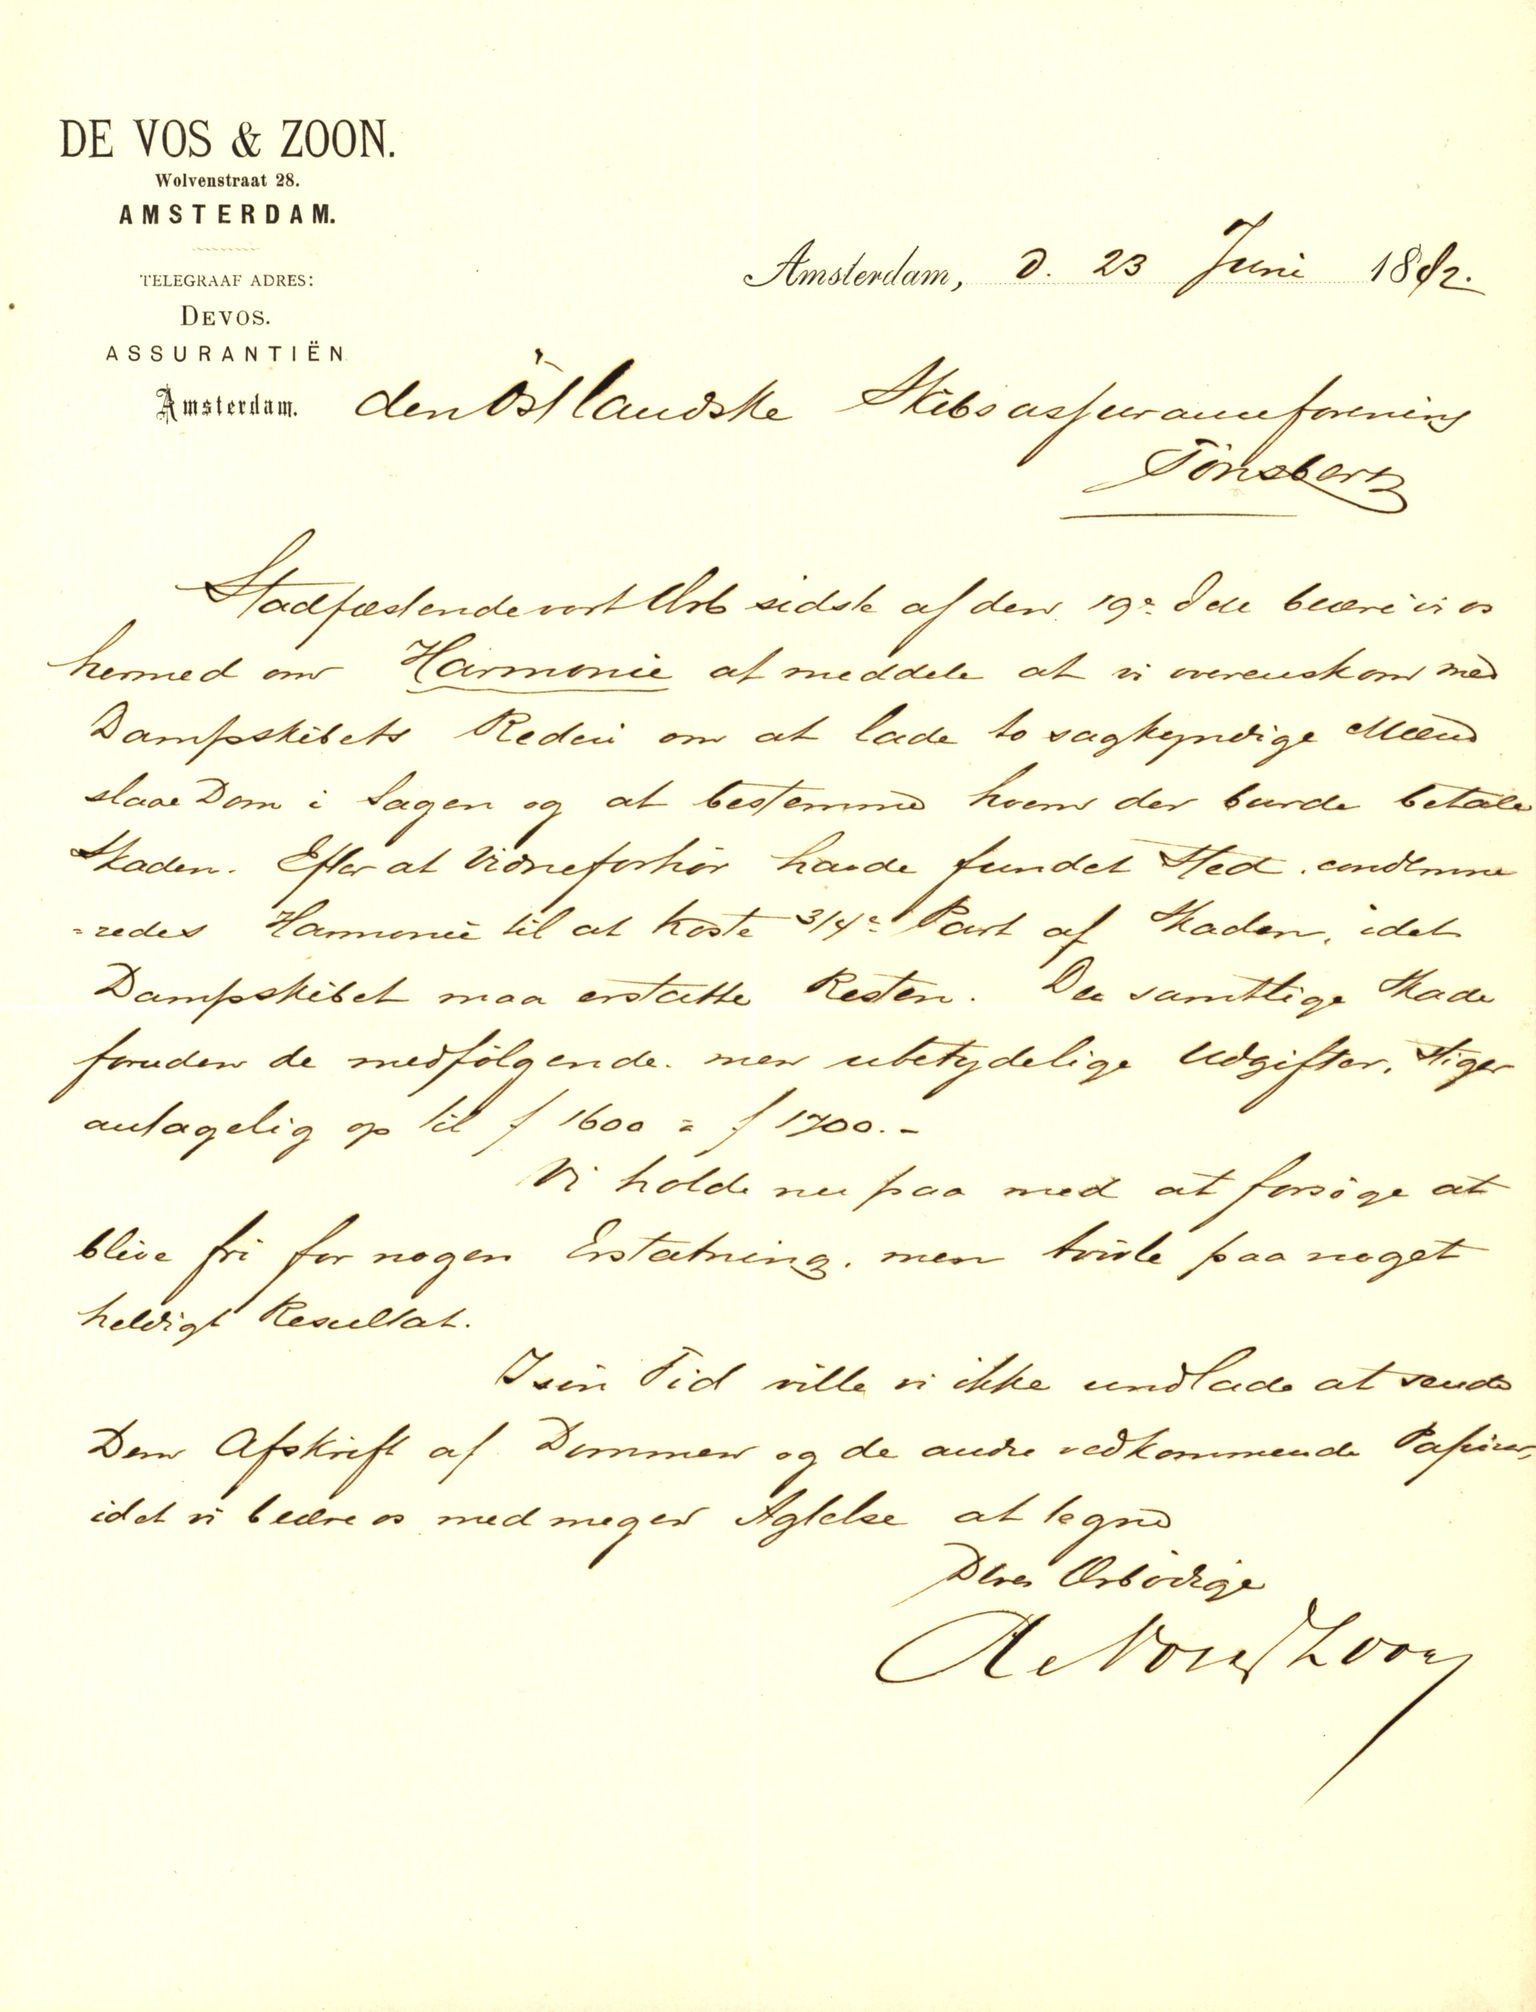 DE VOS & ZOON.
Wolvenstraat 28.
AMSTERDAM.
TELEGRAAF ADRES:
DEVOS.
ASSURANTIËN
Amsterdam.
Amsterdam, d. 23 Juni 1882.
den Östlandske Skibsassuranceforening
Tönsberg
Stadfæstende vort Ærb sidste af den 19e ds beære vi os
hermed om Harmonie at meddele at vi overenskom med
Dampskibets Rederi om at lade to sagkyndige Mænd
slaae Dom i Sagen og at bestemme hvem der burde betale
Skaden. Efter at Vidneforhör havde fundet Sted, condemne
=redes Harmonie til at koste 3/4e Part af Skaden, idet
Dampskibet maa erstatte Resten. Den samtlige Skade
foruden de medfölgende, men ubetydelige Udgifter, stiger
antagelig op til f 1600 = f 1700.-
Vi holde nu paa med at forsöge at
blive fri for nogen Erstatning, men tvivle paa noget
heldigt Resultat.
I sin Tid ville vi ikke undlade at sende
Dem Afskrift af Dommen og de andre vedkommende Papirer,
idet vi beære os med megen Agtelse at tegne
Deres Ærbödige
De Vos & Zoon